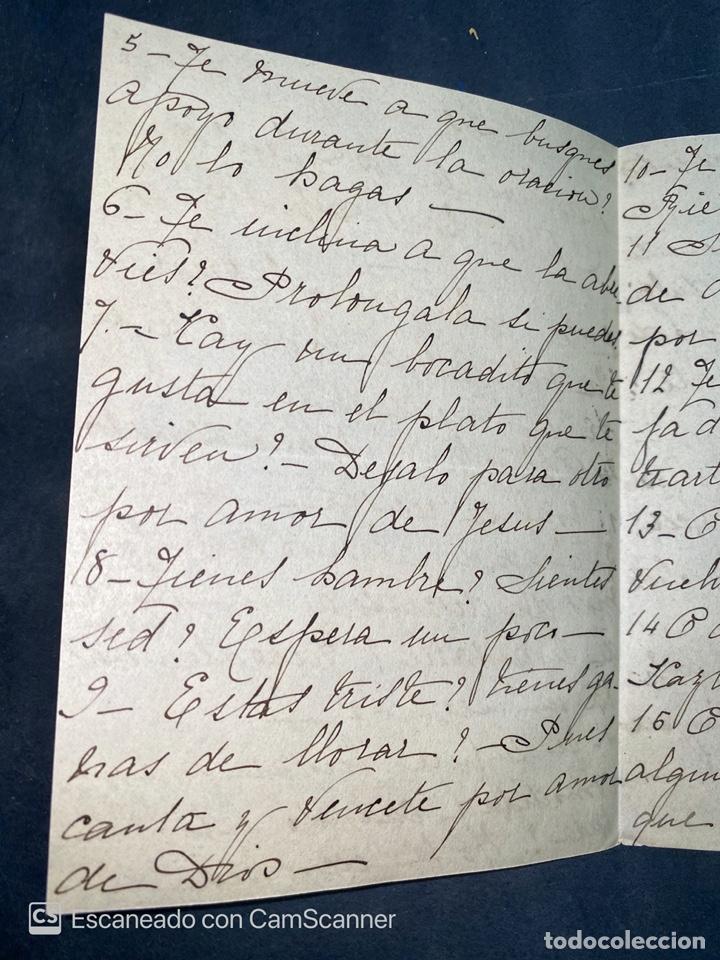 5 - Te mueve a que busques
apoyo durante la oracion?
No lo hagas —
6 - Te inclina a que la abre-
vies? Prolongala si puedes
7. - Hay un bocadito que te
gusta en el plato que te
sirven? - Dejalo para otro
por amor de Jesus —
8 - Tienes hambre? Sientes
sed? Espera un poco —
9 - Estas triste? tienes ga-
nas de llorar? - Pues
canta y vencete por amor
de Dios —
10 - Te
Bie
11 S
de
por
12 Te
fad
13 - C
14 C
Hazt
15 C
algun
que
CS Escaneado con CamScanner
todocoleccion